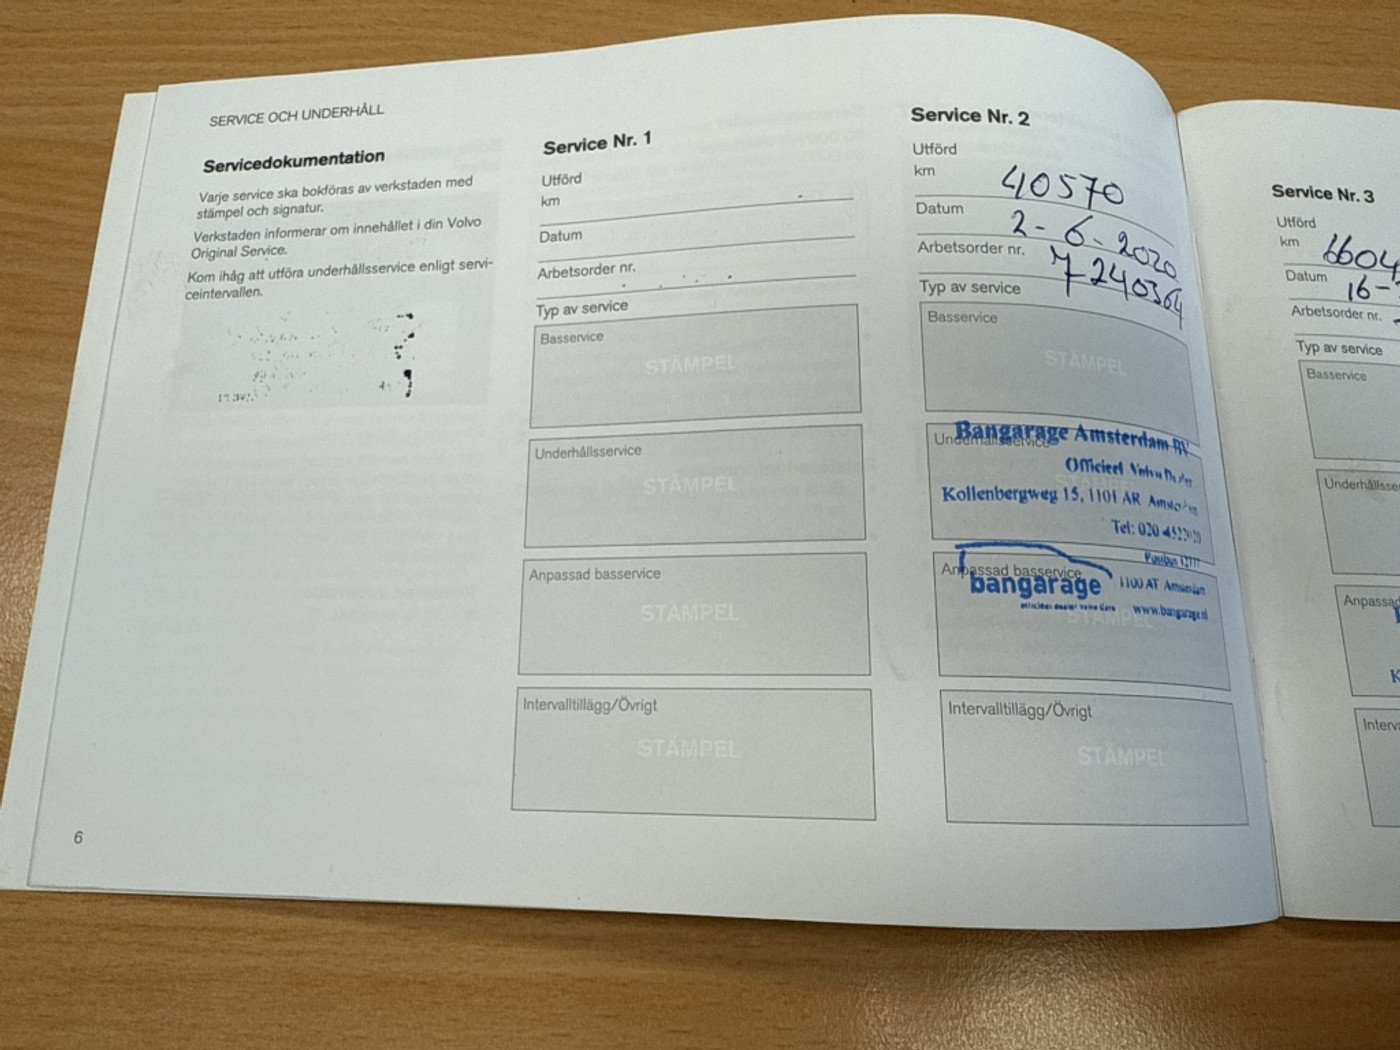 SERVICE OCH UNDERHÅLL
Servicedokumentation
Varje service ska bokföras av verkstaden med
stämpel och signatur.
Verkstaden informerar om innehållet i din Volvo
Original Service.
Kom ihåg att utföra underhållsservice enligt servi-
ceintervallen.
6
Service Nr. 1
Utförd
km
Datum
Arbetsorder nr.
Typ av service
Basservice
STÄMPEL
Underhållsservice
STÄMPEL
Anpassad basservice
STÄMPEL
Intervalltillägg/Övrigt
STÄMPEL
Service Nr. 2
Utförd
km 40570
Datum 2-6-2020
Arbetsorder nr. 7240364
Typ av service
Basservice
STÄMPEL
Underhållsservice
Bangarage Amsterdam BV
Officieel Volvo Dealer
Kollenbergweg 15, 1101 AR
Tel: 020
Anpassad basservice
bangarage
1100 AT
www.bangarage.nl
STÄMPEL
Intervalltillägg/Övrigt
STÄMPEL
Service Nr. 3
Utförd
km 6604
Datum 16-
Arbetsorder nr.
Typ av service
Basservice
Underhållsse
Anpassad
K
Interv